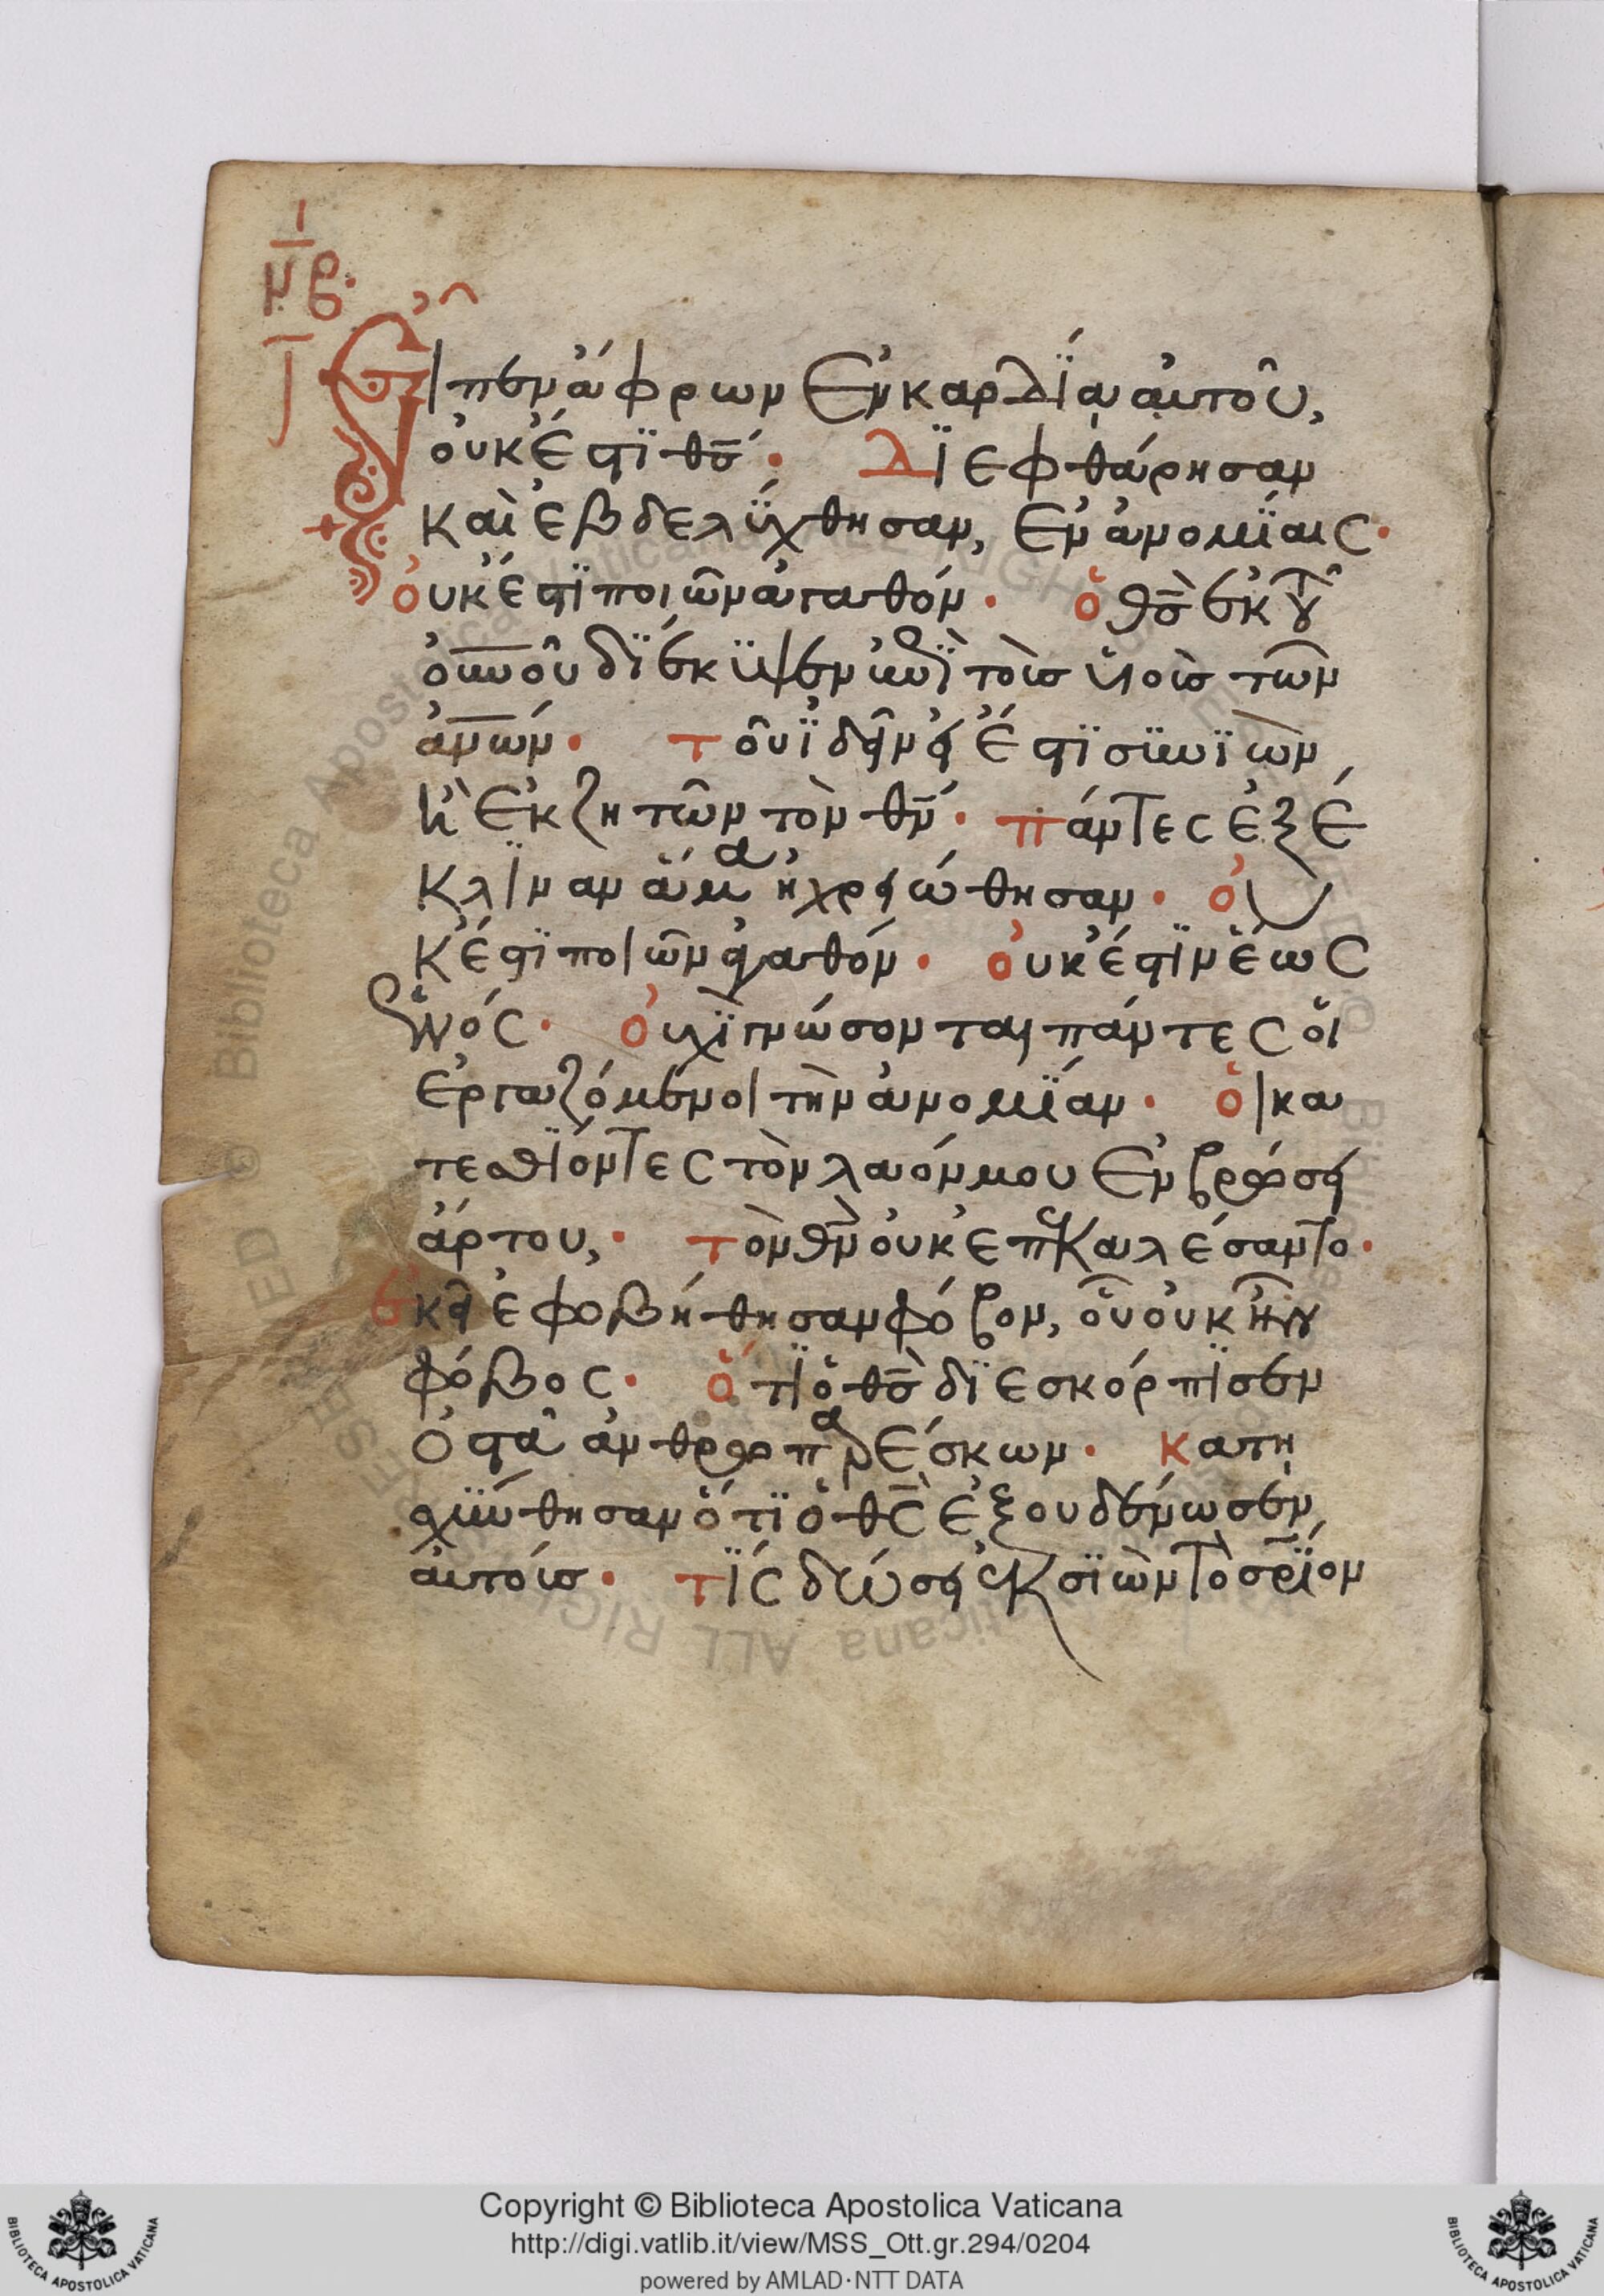 ν̅β̅
Εἶπεν ἄφρων ἐν καρδίᾳ αὐτοῦ,
οὐκ ἔστι θς̅· Διεφθάρησαν
καὶ ἐβδελύχθησαν, ἐν ἀνομίαις·
οὐκ ἔστι ποιῶν ἀγαθόν· ὁ θς̅ ἐκ τοῦ
οὐνοῦ διέκυψεν ἐπὶ τοὺς υἱοὺς τῶν
ἀνων· τοῦ ἰδεῖν εἰ ἔστι συνιὼν,
ἢ ἐκζητῶν τὸν θν̅· πάντες ἐξέ
κλιναν ἅμα ἠχρειώθησαν· οὐ
κ ἔστι ποιῶν ἀγαθόν· οὐκ ἔστιν ἕως
ἑνός· οὐχὶ γνώσονται πάντες οἱ
ἐργαζόμενοι τὴν ἀνομίαν· οἱ κα
τεσθίοντες τὸν λαόν μου ἐν βρώσει
ἄρτου,· τὸν θν̅ οὐκ ἐπικαλέσαντο·
ἐκεῖ ἐφοβήθησαν φόβον, οὗ οὐκ ἦν
φόβος· ὅτι ὁ θς̅ διεσκόρπισεν
ὀστᾶ ἀνθρωπαρέσκων· κατῃ
σχύνθησαν ὅτι ὁ θς̅ ἐξουδένωσεν
αὐτούς· τίς δώσει ἐκ σιὼν τὸ σριον
Copyright © Biblioteca Apostolica Vaticana
http://digi.vatlib.it/view/MSS_Ott.gr.294/0204
powered by AMLAD·NTT DATA
BIBLIOTECA APOSTOLICA VATICANA
BIBLIOTECA APOSTOLICA VATICANA